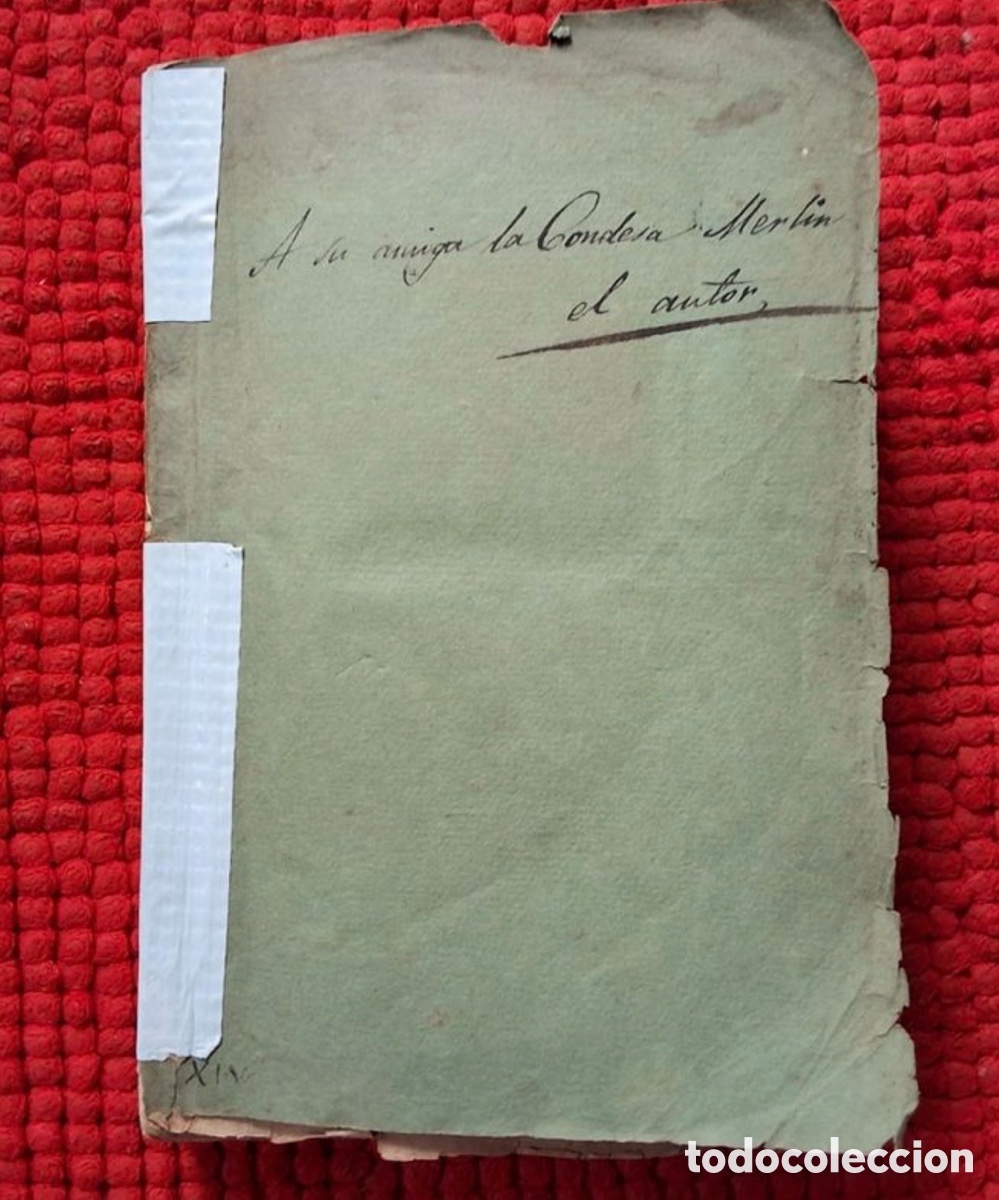 A su amiga la Condesa Merlin
el autor,
XIV
todocoleccion